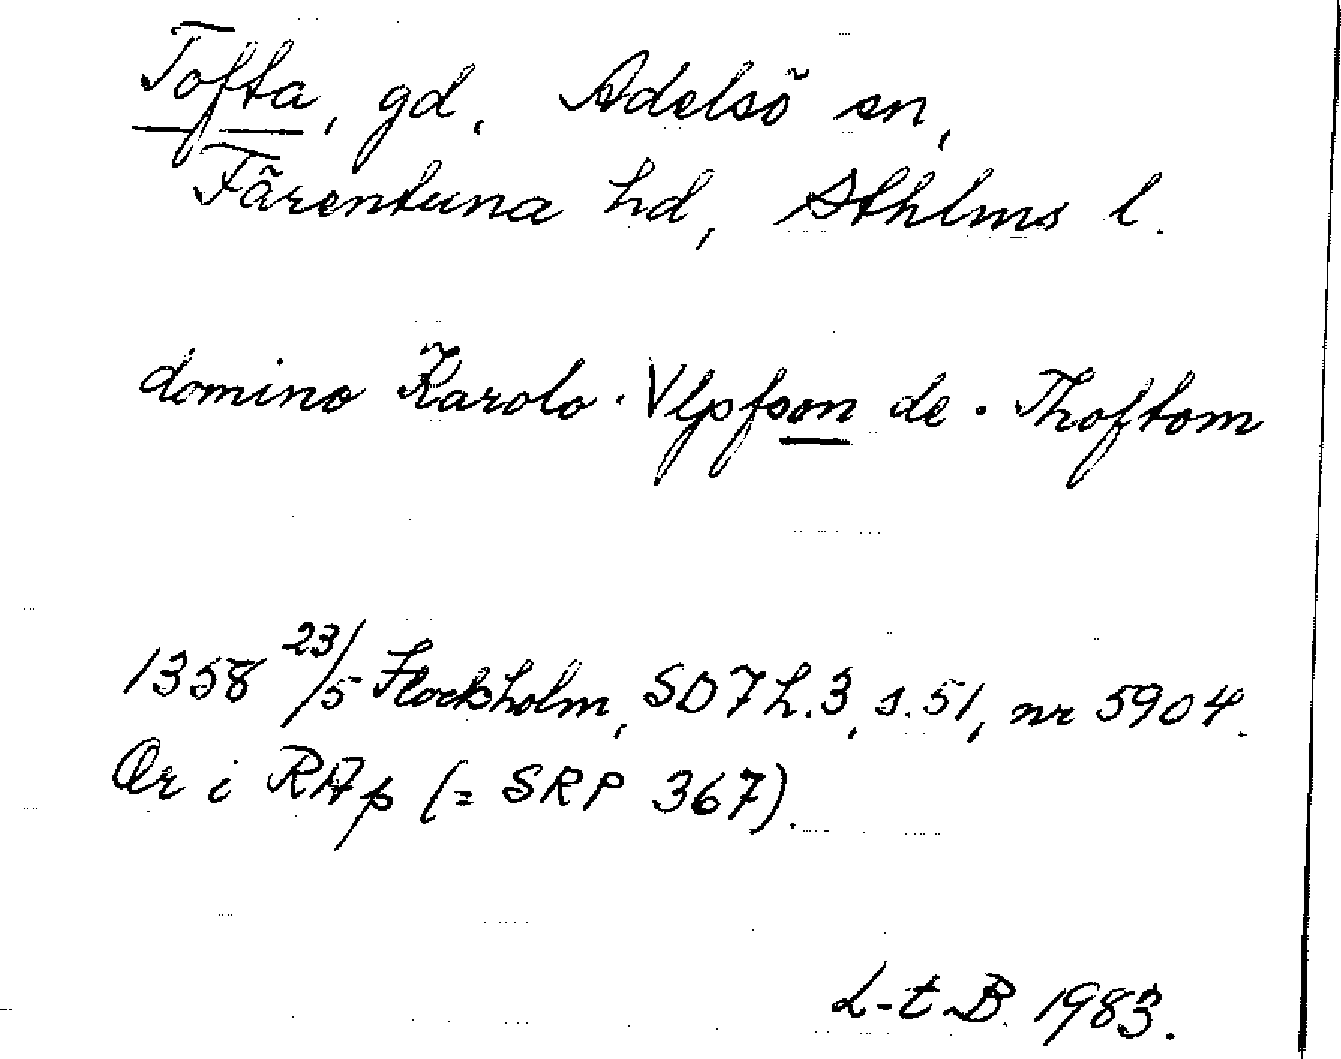 Tofta, gd, Adelsö sn,
Färentuna hd, Sthlms l.
domino Karolo · Vlpfson de · Thoftom
1358 23/5 Stockholm, SD 7 h. 3, s. 51, nr 5904.
Or i RAp (= SRP 367).
L-t B. 1983.